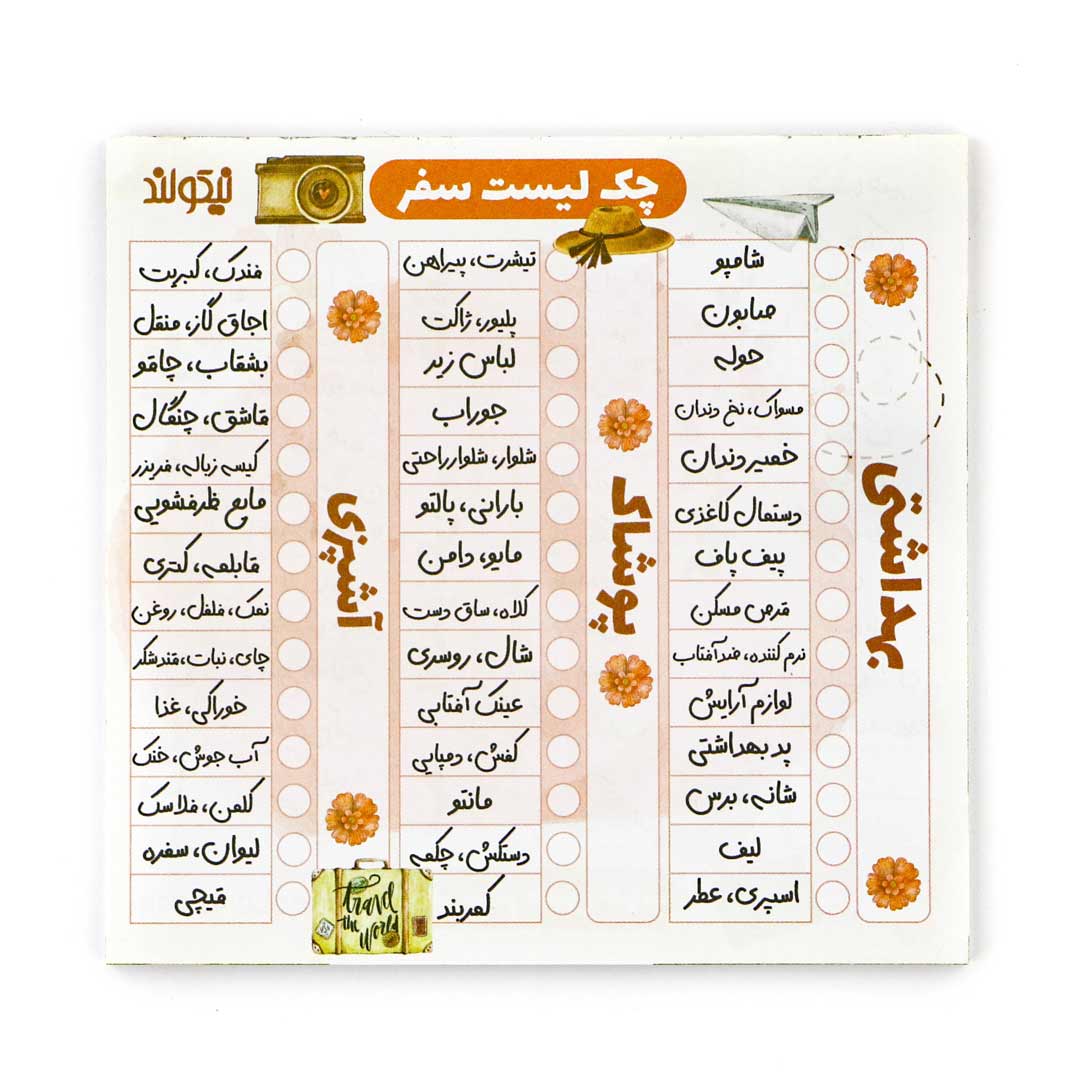 چک لیست سفر
نیکولند
بهداشتی
شامپو
صابون
حوله
مسواک، نخ دندان
خمیر دندان
دستمال کاغذی
پیف پاف
قرص مسکن
نرم کننده، ضدآفتاب
لوازم آرایش
پد بهداشتی
شانه، برس
لیف
اسپری، عطر
پوشاک
تیشرت، پیراهن
پلیور، ژاکت
لباس زیر
جوراب
شلوار، شلوار راحتی
بارانی، پالتو
مایو، دامن
کلاه، ساق دست
شال، روسری
عینک آفتابی
کفش، دمپایی
مانتو
دستکش، چکمه
کمربند
آشپزی
فندک، کبریت
اجاق گاز، منقل
بشقاب، چاقو
قاشق، چنگال
کیسه زباله، فریزر
مایع ظرفشویی
قابلمه، کتری
نمک، فلفل، روغن
چای، نبات، قندشکر
خوراکی، غذا
آب جوش، خنک
کلمن، فلاسک
لیوان، سفره
قیچی
Travel
the
World